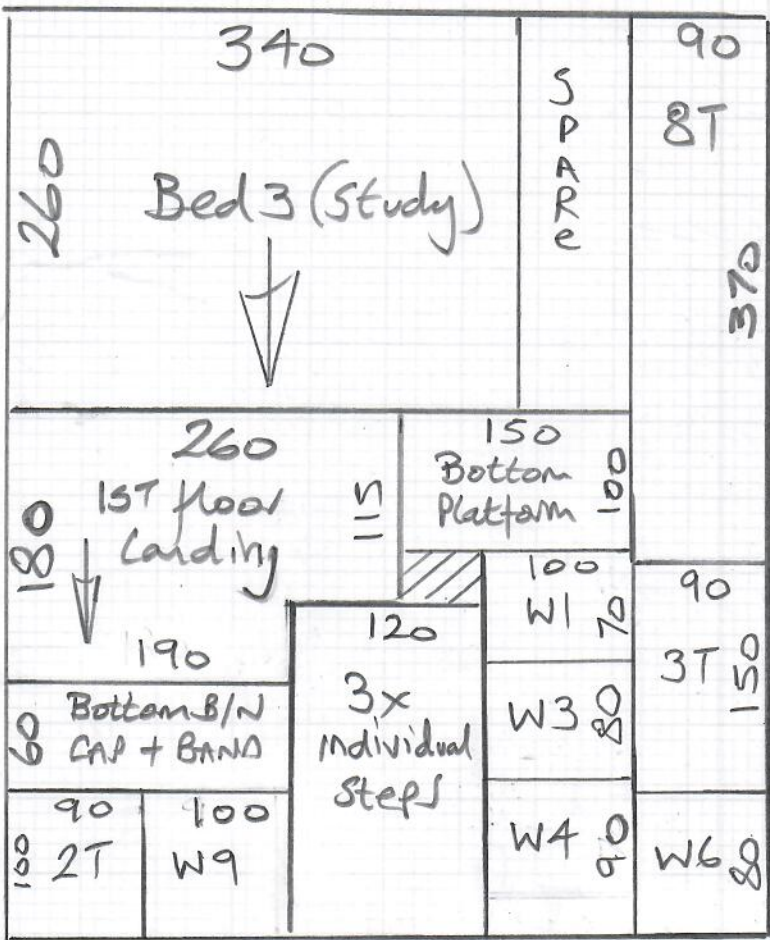 340
260
Bed 3 (Study)
SPARe
90
8T
370
260
1ST floor
Landing
115
180
190
150
Bottom
Platform
100
100
W1
70
90
3T
150
120
3x
individual
Steps
W3
80
60
Bottom B/N
CAP + BAND
90
2T
100
100
W9
W4
90
W6
80